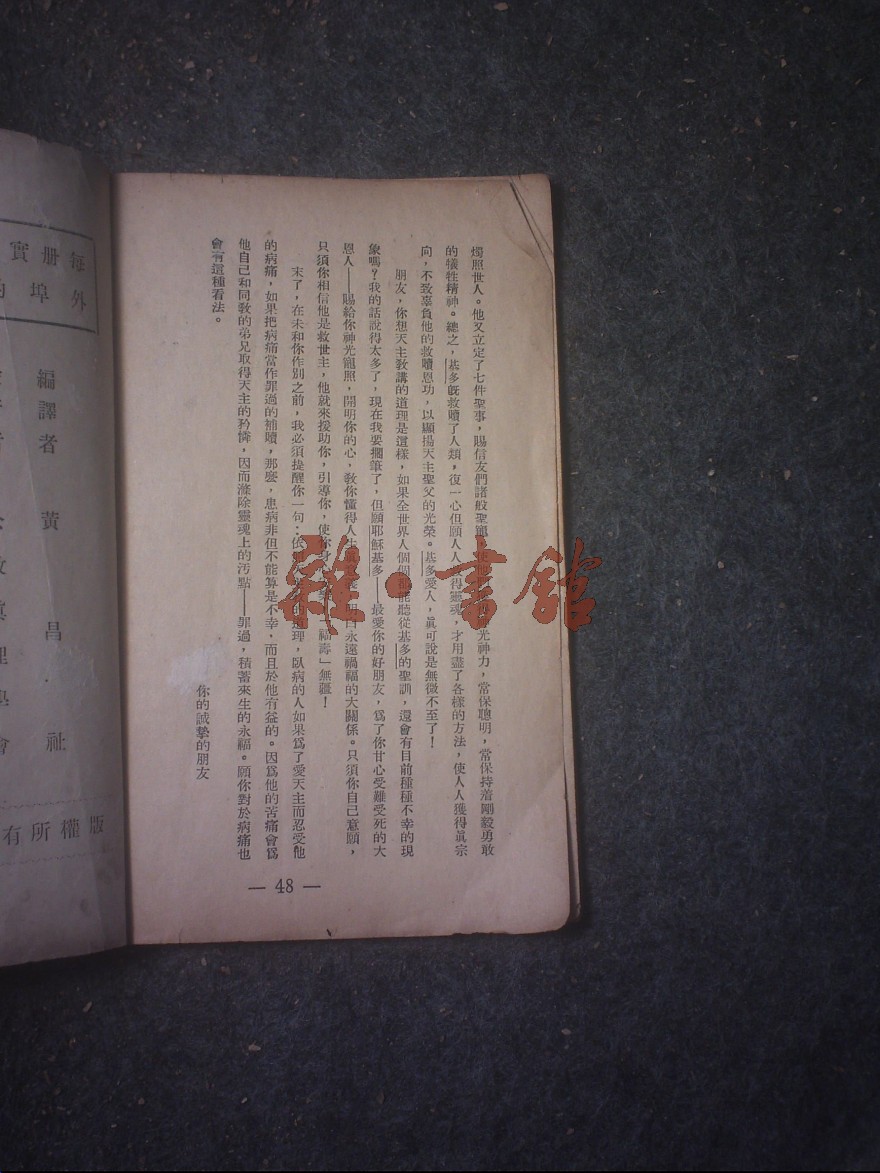 燭照世人。他又立定了七件聖事，賜信友們諸般聖寵，使他神光神力，常保聰明，常保持着剛毅勇敢
的犧牲精神。總之，基多旣救贖了人類，復一心但願人人救得靈魂，才用盡了各樣的方法，使人人獲得眞宗
向，不致辜負他的救贖恩功，以顯揚天主聖父的光榮。基多愛人，眞可說是無微不至了！
朋友，你想天主敎講的道理是這樣，如果全世界人個個都能聽從基多的聖訓，還會有目前種種不幸的現
象嗎？我的話說得太多了，現在我要擱筆了，但願耶穌基多——最愛你的好朋友，爲了你甘心受難受死的大
恩人——賜給你神光寵照，開明你的心，敎你懂得人生 明白永遠禍福的大關係。只須你自己意願，
只須你相信他是救世主，他就來援助你，引導你，使你身 福壽」無疆！
末了，在未和你作別之前，我必須提醒你一句：依 的道理，臥病的人如果爲了愛天主而忍受他
的病痛，如果把病痛當作罪過的補贖，那麼，患病非但不能算是不幸，而且於他有益的。因爲他的苦痛會爲
他自己和同敎的弟兄取得天主的矜憐，因而滌除靈魂上的汚點——罪過，積蓄來生的永福。願你對於病痛也
會有這種看法。
你的誠摯的朋友
— 48 —
每册實
外埠
編譯者 黃昌祉
眞理學會
版權所有
雜·書館